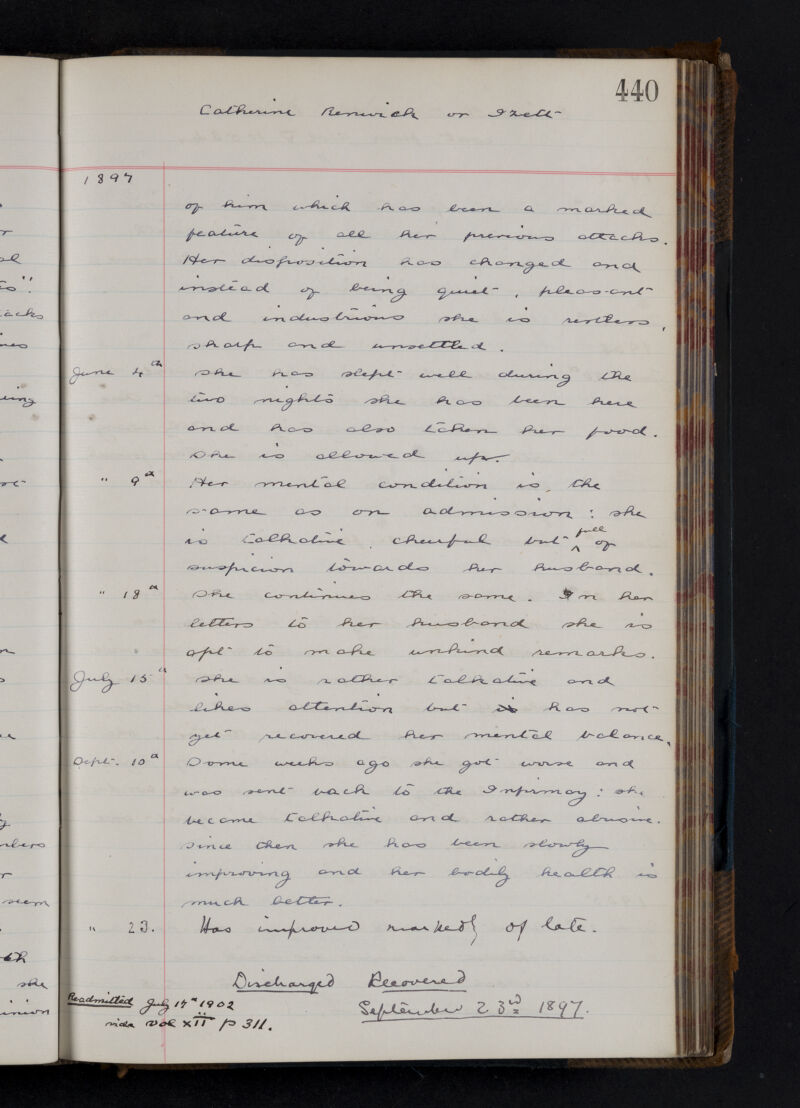 440
Catherine Renwick or Izett
1897
of him which has been a marked
feature of all her previous attacks.
Her disposition has changed and
instead of being quiet, pleasant
and industrious she is restless,
sharp and unsettled.
June 4th She has slept well during the
two nights she has been here
and has also taken her food.
She is allowed up.
" 9th Her mental condition is, the
same as on admission: she
is talkative, cheerful but full of
suspicion towards her husband.
" 18th She continues the same. In her
letters to her husband she is
apt to make unkind remarks.
July 15th She is rather talkative and
likes attention but has not
yet recovered her mental balance.
Sept. 10th Some weeks ago she got worse and
was sent back to the Infirmary: she
became talkative and rather abusive.
Since then she has been slowly
improving and her bodily health is
much better.
" 23. Has improved markedly of late.
Discharged Recovered
September 23rd 1897.
Readmitted July 17th 1902
vide Vol XII p 311.